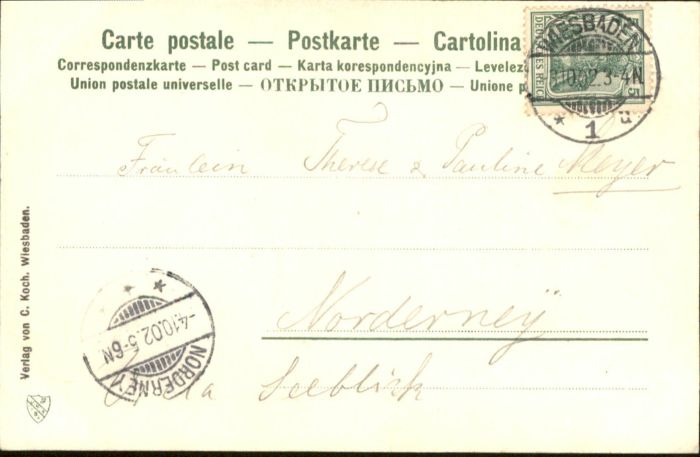 Carte postale — Postkarte — Cartolina
Correspondenzkarte — Post card — Karta korespondencyjna — Levelez
Union postale universelle — ОТКРЫТОЕ ПИСЬМО — Unione p
DEUTSCHES REICH 5
WIESBADEN
10.02.3-4N
* 1 ü
Fräulein Therese & Pauline Meyer
Norderneÿ
Villa Seeblick
NORDERNEY
-4.10.02.5-6N
Verlag von C. Koch. Wiesbaden.